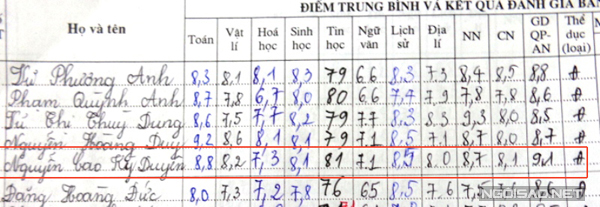 ĐIỂM TRUNG BÌNH VÀ KẾT QUẢ ĐÁNH GIÁ
Họ và tên Toán Vật lí Hoá học Sinh học Tin học Ngữ văn Lịch sử Địa lí NN CN GD QP-AN Thể dục (loại)
Từ Phương Anh 8,3 8,1 8,1 8,3 79 6.6 8.3 7.3 8,4 8,5 8,8 Đ
Phạm Quỳnh Anh 8,7 7,8 6,7 8,0 80 6.6 7,4 7.9 7,8 7,8 8,6 Đ
Từ Thị Thuỳ Dung 8,6 7,5 7,7 8,2 79 7.7 8.3 8.3 9,3 8.0 8,5 Đ
Nguyễn Hoàng Duy 9,2 8,6 8,1 8,1 79 7.1 8,5 7.1 8,7 8,0 8,7 Đ
Nguyễn Cao Kỳ Duyên 8,8 8,2 7,3 8,1 81 7.1 8,5 8.0 8,7 8,1 9,1 Đ
Đặng Hoàng Đức 8,0 7,3 7,2 7,8 76 65 8,5 7.6 8,6 Đ
NGOISAO.NET